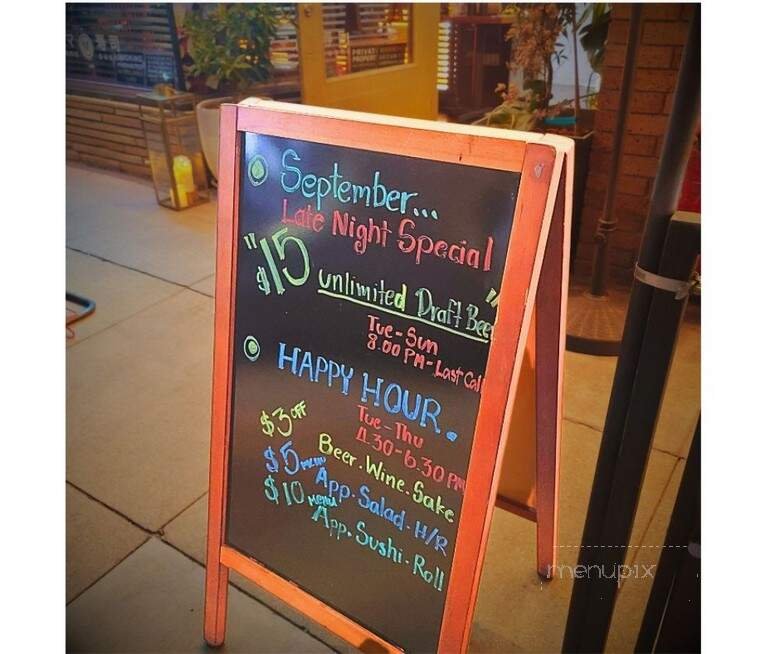 September...
Late Night Special
"$15 unlimited Draft Beer"
Tue-Sun
8.00 PM-Last Call
HAPPY HOUR.
Tue-Thu
4.30-6.30 PM
$3 OFF Beer.Wine.Sake
$5 MENU App.Salad.H/R
$10 MENU App.Sushi.Roll
PRIVATE
PROPERTY
menupix